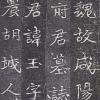 魏故咸陽
府君墓誌
君諱玉字
農胡城人